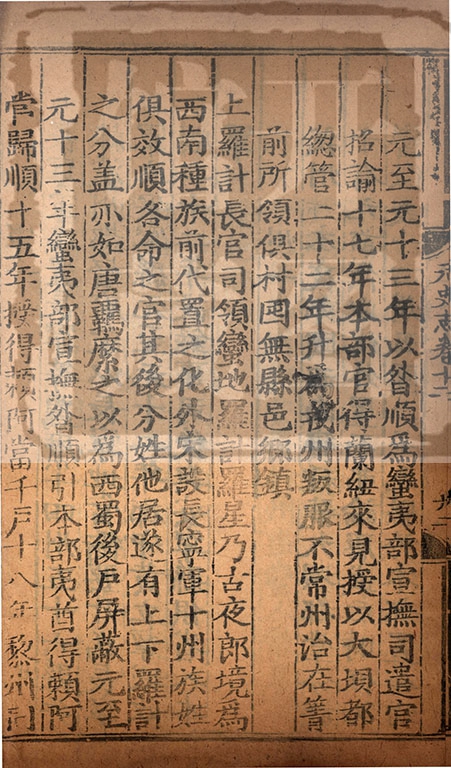 元至元十三年以昝順爲蠻夷部宣撫司遣官
招諭十七年本部官得蘭紐來見授以大垻都
緫管二十二年升爲戎州叛服不常州治在箐
前所領俱村囤無縣邑鄉鎮
上羅計長官司領蠻地羅計羅星乃古夜郎境爲
西南種族前代置之化外宋設長寧軍十州族姓
俱效順各命之官其後分姓他居遂有上下羅計
之分盖亦如唐羈縻之以爲西蜀後戶屏蔽元至
元十三年蠻夷部宣撫昝順引本部夷酋得賴阿
當歸順十五年授得賴阿當千戶十八年黎州同
元史志卷十二